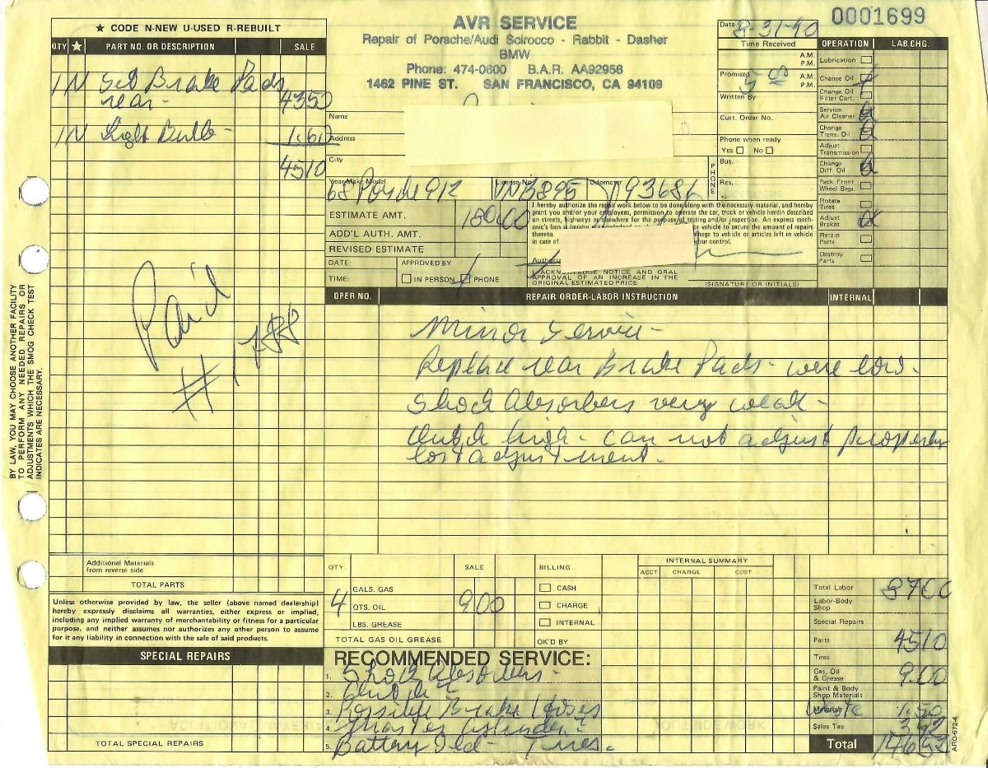 ★ CODE N-NEW U-USED R-REBUILT
QTY ★ PART NO. OR DESCRIPTION SALE
1 N Set Brake Pads
rear - 43.50
1 N Light Bulb - 1.60
45.10
AVR SERVICE
Repair of Porsche/Audi Scirocco - Rabbit - Dasher
BMW
Phone: 474-0600 B.A.R. AA92958
1462 PINE ST. SAN FRANCISCO, CA 94109
0001699
Date 8-31-90
Time Received
A.M.
P.M.
Promised A.M.
P.M.
Written By
Cust. Order No.
Phone when ready
Yes No
PHONE
Bus.
Res.
OPERATION LAB.CHG.
Lubrication
Change Oil
Change Oil
Filter Cart.
Service
Air Cleaner
Change
Trans. Oil
Adjust
Transmission
Change
Diff. Oil
Pack Front
Wheel Brgs.
Rotate
Tires
Adjust
Brakes
Retain
Parts
Destroy
Parts
Name
Address
City
Year-Make-Model License No. Odometer
68 Porsche 912 93686
ESTIMATE AMT. 180.00
ADD'L AUTH. AMT.
REVISED ESTIMATE
DATE: APPROVED BY
TIME: IN PERSON PHONE
I hereby authorize the repair work below to be done along with the necessary material, and hereby
grant you and/or your employees, permission to operate the car, truck or vehicle herein described
on streets, highways or elsewhere for the purpose of testing and/or inspection. An express mech-
anic's lien is hereby vehicle to secure the amount of repairs
thereto. damage to vehicle or articles left in vehicle
in case of your control.
I ACKNOWLEDGE NOTICE AND ORAL
APPROVAL OF AN INCREASE IN THE
ORIGINAL ESTIMATED PRICE.
(SIGNATURE OR INITIALS)
OPER NO. REPAIR ORDER-LABOR INSTRUCTION INTERNAL
Paid
Minor Service -
Replace rear Brake Pads - were low.
Shock Absorbers very weak -
Clutch high - can not adjust properly
lost adjustment.
BY LAW, YOU MAY CHOOSE ANOTHER FACILITY
TO PERFORM ANY NEEDED REPAIRS OR
ADJUSTMENTS WHICH THE SMOG CHECK TEST
INDICATES ARE NECESSARY.
Additional Materials
from reverse side
TOTAL PARTS
Unless otherwise provided by law, the seller (above named dealership)
hereby expressly disclaims all warranties, either express or implied,
including any implied warranty of merchantability or fitness for a particular
purpose, and neither assumes nor authorizes any other person to assume
for it any liability in connection with the sale of said products.
SPECIAL REPAIRS
TOTAL SPECIAL REPAIRS
QTY SALE
GALS. GAS
4 QTS. OIL 9.00
LBS. GREASE
TOTAL GAS OIL GREASE
BILLING
CASH
CHARGE
INTERNAL
OK'D BY
INTERNAL SUMMARY
ACCT CHARGE COST
RECOMMENDED SERVICE:
1. Shock Absorbers -
2. Clutch
3. Possible Brake Hoses
4. Master Cylinder -
5. Battery Old - Tires.
Total Labor 87.00
Labor-Body
Shop
Special Repairs
Parts 45.10
Tires
Gas, Oil
& Grease 9.00
Paint & Body
Shop Materials
Materials Waste 1.50
Sales Tax 3.92
Total 146.52
ARO-672-4